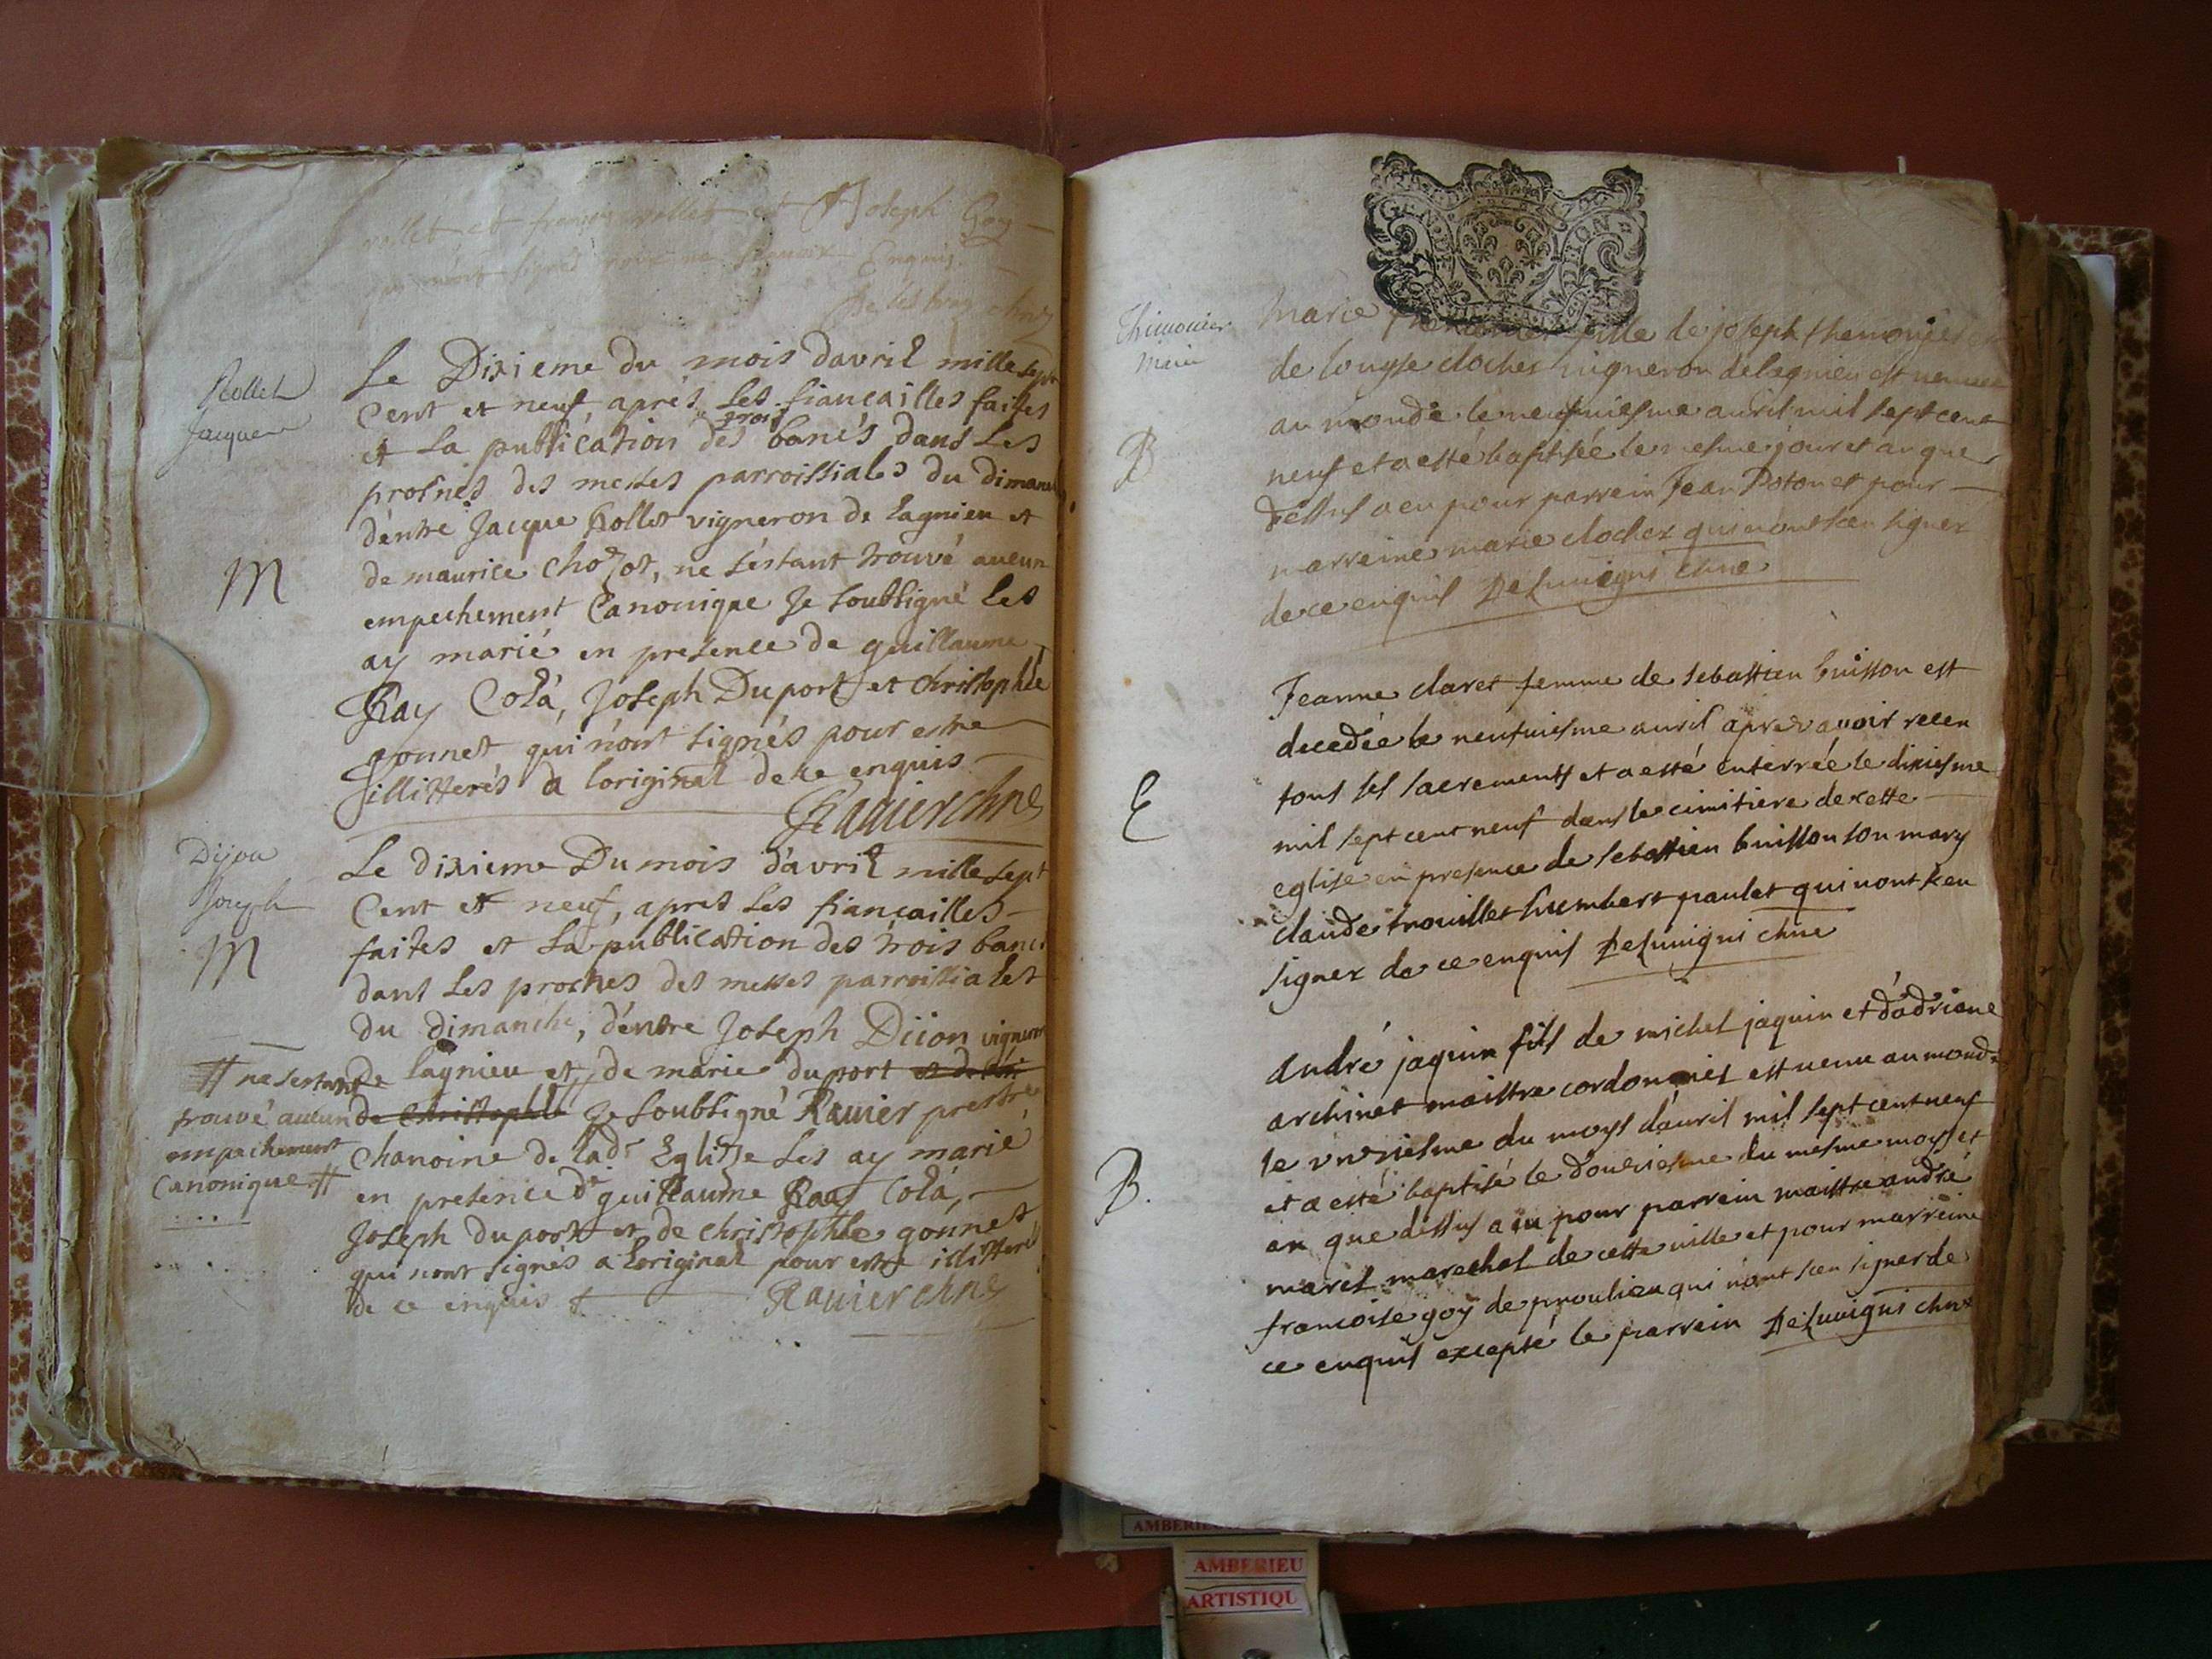 rollet et françois rollet et Joseph Goy
signés pour ne enquis
Rollet
Jacque
M
Le Dixieme du mois d'avril mille sept
Cent et neuf, aprés les fiançailles faites
et la publication des trois banc's dans les
prosnes des messes parroissiales du dimanc
d'entre Jacque Rollet vigneron de lagnieu et
de maurice chozot, ne s'estant trouvé aucun
empechement Canonique Je soubsigné les
ay marié en presence de guillaume
Ray Cola, Joseph Duport et christophle
gonnet qui n'ont signés pour estre
illitterés a l'original de ce enquis
Ravier chne
Dijon
Joseph
M
Le dixieme Du mois d'avril mille sept
Cent et neuf, apres les fiançailles
faites et la publication des trois banc
dans les prosnes des messes parroissiales
du dimanche, d'entre Joseph Diion vigneron
de lagnieu et de marie duport et de
de christophle Je soubsigné Ravier prestre
# ne s'estant
trouvé aucun
empechement
Canonique #
chanoine de lad. Eglise les ay marié
en presence de guillaume Ray Cola,
Joseph duport et de christophle gonnet
qui n'ont signés a l'original pour estre illitteré
de ce enquis Ravier chne
GEN DIION
Thimonier
Marie
B
marie fille de joseph themonier et
de louyse clocher vigneron de lagnieu est venue
au monde le neufviesme avril mil sept cent
neuf et a esté baptisée le mesme jour et an que
dessus a eu pour parrein Jean Poton et pour
marreine marie clocher qui n'ont sceu signer
de ce enquis Deluvigni chne
E
Jeanne claret femme de sebastien buisson est
decedée le neufviesme avril apres avoir receu
tous les sacrements et a esté enterrée le dixiesme
mil sept cent neuf dans le cimitiere de cette
eglise en presence de sebastien buisson son mary
claude trouillet humbert paulet qui n'ont sceu
signer de ce enquis Deluvigni chne
B.
andré jaquin fils de michel jaquin et d'adriane
archinet maistre cordonnier est venu au monde
le unziesme du moys d'avril mil sept cent neuf
et a esté baptisé le douziesme du mesme moys et
an que dessus a eu pour parrein maistre andré
maret marechal de cette ville et pour marreine
francoise goy de proulieu qui n'ont sceu signer de
ce enquis excepté le parrein Deluvigni chne
AMBERIEU
AMBERIEU
ARTISTIQU